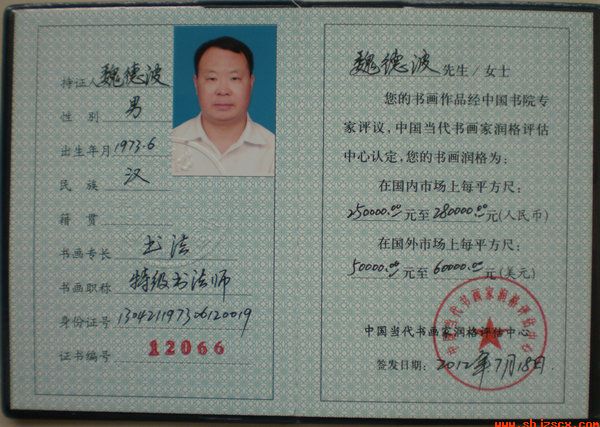 持证人 魏德波
性 别 男
出生年月 1973.6
民 族 汉
籍 贯
书画专长 书法
书画职称 特级书法师
身份证号 130421197306120019
证书编号 12066
魏德波 先生/女士
您的书画作品经中国书院专
家评议,中国当代书画家润格评估
中心认定,您的书画润格为:
在国内市场上每平方尺:
250000.00 元至 280000.00 元(人民币)
在国外市场上每平方尺:
50000.00 元至 60000.00 元(美元)
中国当代书画家润格评估中心
中国当代书画家润格评估中心
签发日期: 2012年7月18日
www.shjzscx.com